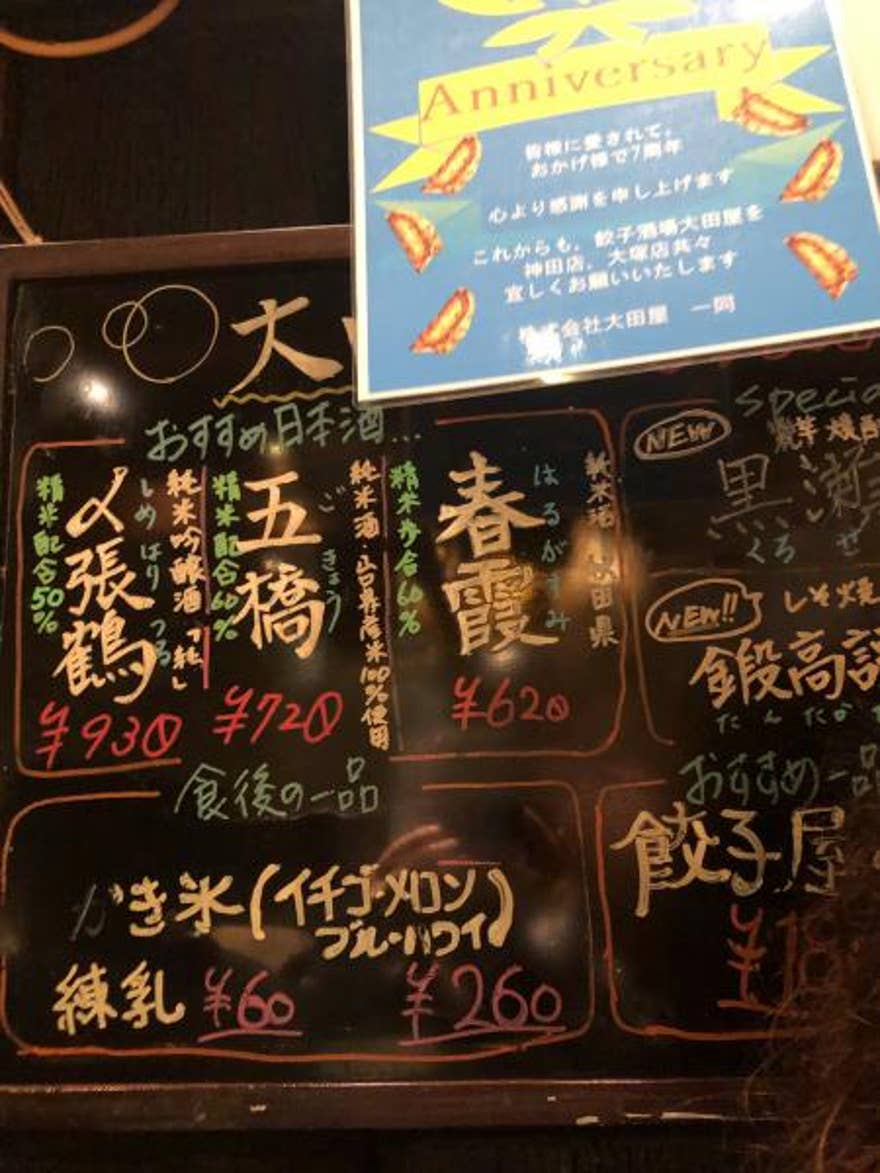 Anniversary
皆様に愛されて、
おかげ様で7周年
心より感謝を申し上げます
これからも、餃子酒場大田屋を
神田店、大塚店共々
宜しくお願いいたします
株式会社大田屋 一同
大
おすすめ日本酒...
精米配合50%
〆張鶴
しめはりつる
純米吟醸酒「純」
¥930
精米配合60%
五橋
ごきょう
純米酒・山口県産米100%使用
¥720
精米歩合60%
春霞
はるがすみ
純米酒 秋田県
¥620
NEW
黒瀬
くろせ
NEW!!
しそ焼
鍛高譚
たんたか
おすすめ一品
餃子屋
食後の一品
かき氷(イチゴ・メロン
ブルーハワイ)
練乳 ¥60 ¥260